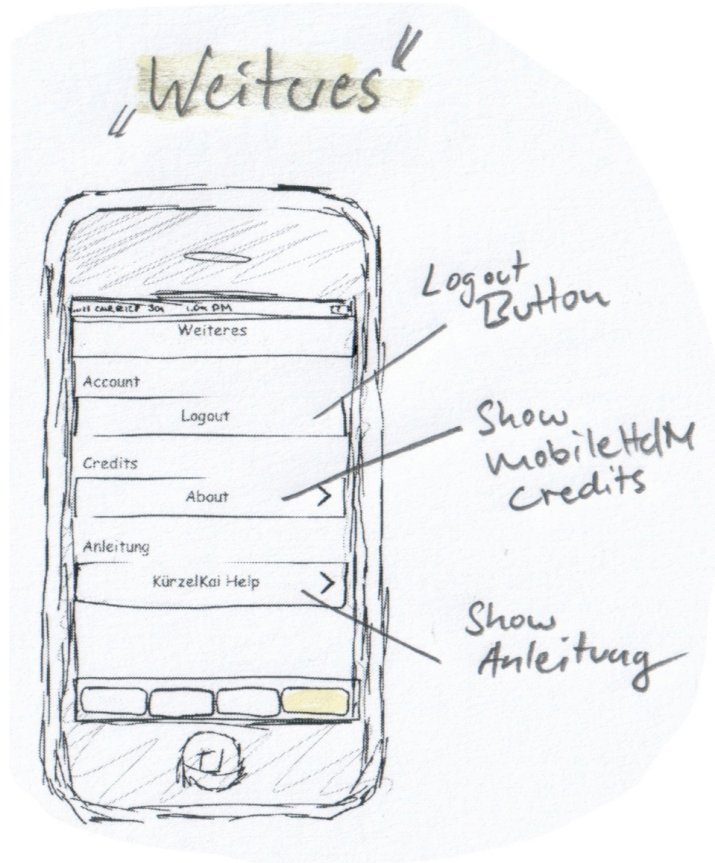 „Weiteres"
1:04 PM
Weiteres
Account
Logout
Credits
About
Anleitung
KürzelKai Help
Logout
Button
Show
mobileHdM
Credits
Show
Anleitung